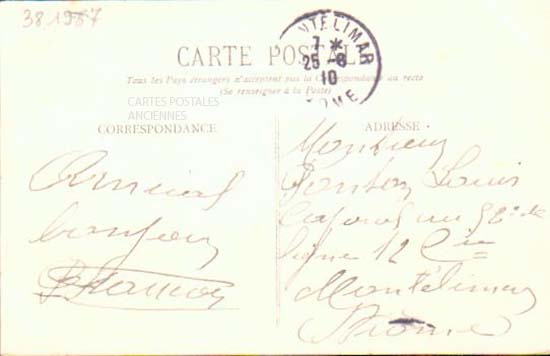 38.1987
CARTE POSTALE
Tous les Pays étrangers n'acceptent pas la Correspondance au recto
(Se renseigner à la Poste)
MONTÉLIMAR
7 *
25 -8
10
DROME
CARTES POSTALES
ANCIENNES
CORRESPONDANCE
Amical
bonjour
ADRESSE
Monsieur
Louis
Caporal au 52e de
ligne 12 Cie
Montélimar
Drome